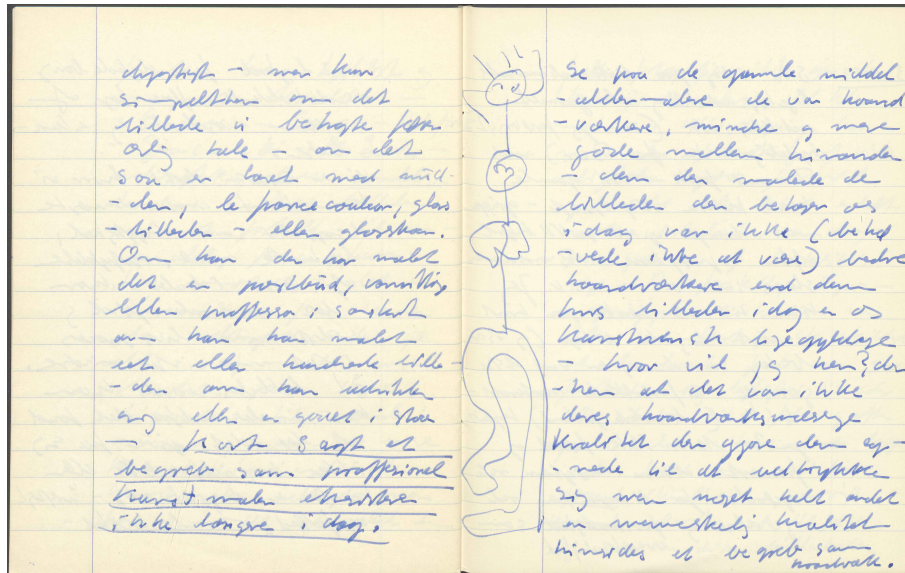 – men kun
simpelthen om det
billede vi betragte fører
ærlig tale – om det
som er laret med
– den, le parce couleur, glas
– billeden – ellen glasskaar.
Om han der har malet
det er postbud, vanvittig
ellen proffessor i
om han har malet
eet ellen hundrede bille–
– den om han udstillen
evig ellen er gemt i
– Kort sagt et
begreb som proffesional
Kunstmalen eksisteren
ikke længere i dag.
Se paa de gamle middel
– alden–malere de van haand
– værkere, mindre og mere
gode mellem hinanden
– dem der malede de
billeden der betagen os
idag van ikke (behø
– vede ikke at være) bedre
haandværkere end dem
hvis billeden idag en os
Kunstnerisk ligegyldige
– hvor vil jeg hen? den
– hen at det van ikke
deres haandværksmæssige
Kvalitet den gjore dem eg–
– nede til at udtrykke
sig men noget helt andet
en menneskelig Kvalitet
hinsides et begreb som
haandværk.